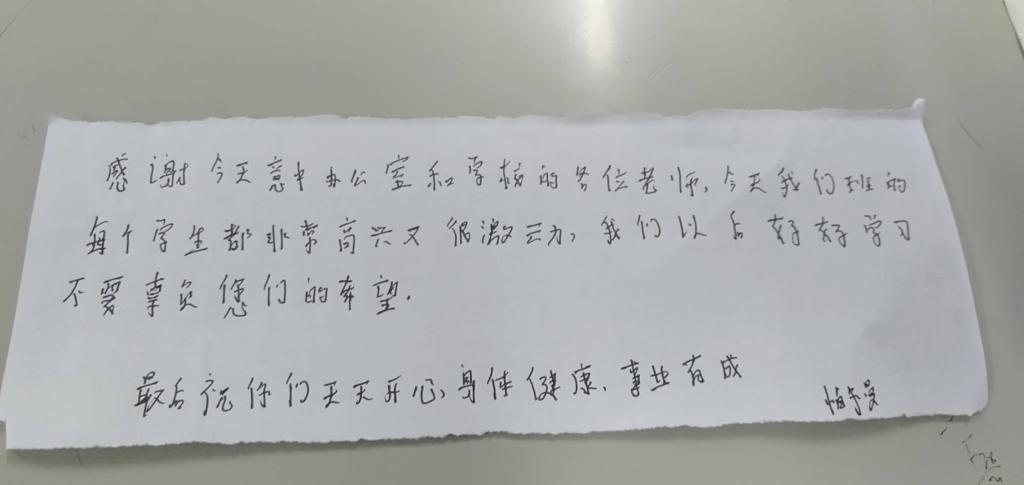 感谢今天意中办公室和学校的各位老师,今天我们班的
每个学生都非常高兴又很激动,我们以后好好学习
不要辜负您们的希望.
最后祝你们天天开心,身体健康,事业有成